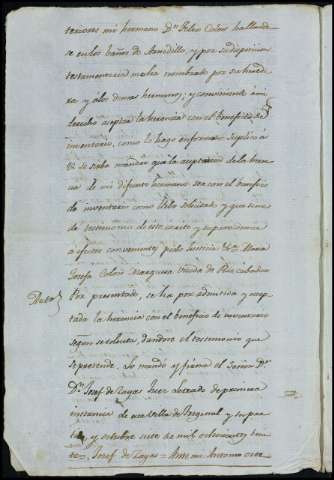 teriores mi hermano Dn. Felix Colon hallando
se en los baños de Arnedillo, y por su disposicion
testamentaria me ha nombrado por su herede
ra y á los demas hermanos; y conviniendo á mi
derecho aceptar la herencia con el beneficio de
inventario, como lo hago en forma: Suplico á
V. se sirba mandar que la aceptacion de la heren
cia de mi difunto hermano sea con el beneficio
de inventario como llebo solicitado y que se me
dé testimonio de este escrito y su providencia
á efectos convenientes pido Justicia &a. Maria
Josefa Colon Viuda de
Auto
Por presentado, se ha por admitida y acep
tada la herencia con el beneficio de inventario
segun se solicita, dandose el testimonio que
se pretende. Lo mandó y firmó el Señor Dn.
Josef de Zayas Juez Letrado de primera
instancia de esta Villa de Fregenal y su parti
do, y octubre siete de mil ochocientos
Josef de Zayas = Antonio